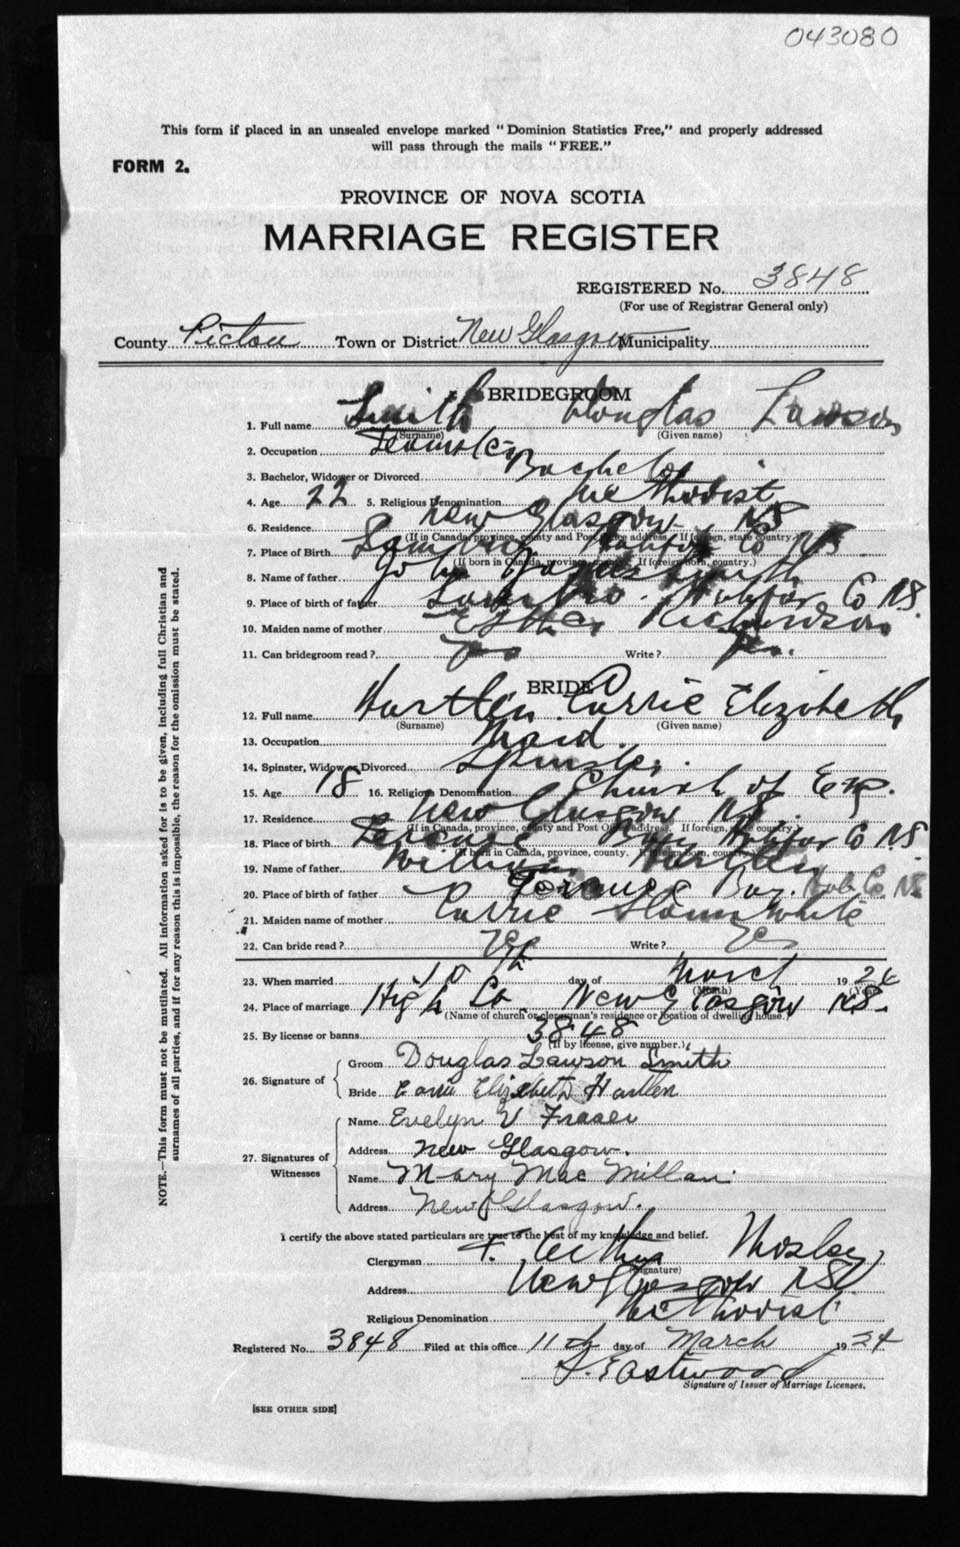 043080
This form if placed in an unsealed envelope marked "Dominion Statistics Free," and properly addressed
will pass through the mails "FREE."
FORM 2.
PROVINCE OF NOVA SCOTIA
MARRIAGE REGISTER
REGISTERED No. 3848
(For use of Registrar General only)
County Pictou Town or District New Glasgow Municipality
BRIDEGROOM
1. Full name Smith Douglas Lawson
(Surname) (Given name)
2. Occupation Teamster
3. Bachelor, Widower or Divorced Bachelor
4. Age 22 5. Religious Denomination Methodist
6. Residence New Glasgow NS
(If in Canada, province, county and Post Office address. If foreign, state country.)
7. Place of Birth Sambro Halifax Co NS
(If born in Canada, province, county. If foreign born, country.)
8. Name of father John Smith
9. Place of birth of father Sambro Halifax Co NS.
10. Maiden name of mother Esther Richardson
11. Can bridegroom read? Yes Write? Yes.
BRIDE
12. Full name Hartlen Carrie Elizabeth
(Surname) (Given name)
13. Occupation Maid.
14. Spinster, Widow or Divorced Spinster
15. Age 18 16. Religious Denomination Church of Eng.
17. Residence New Glasgow NS.
(If in Canada, province, county and Post Office address. If foreign, state country.)
18. Place of birth Terence Bay Halifax Co NS.
(If born in Canada, province, county. If foreign born, country.)
19. Name of father William Hartlen
20. Place of birth of father Terence Bay. Co NS
21. Maiden name of mother Carrie Slaunwhite
22. Can bride read? Yes Write? Yes
23. When married 10th day of March 1924
(Month) (Year)
24. Place of marriage High St. New Glasgow NS.
(Name of church or clergyman's residence or location of dwelling house.)
25. By license or banns 3848
(If by license, give number.)
26. Signature of
Groom Douglas Lawson Smith
Bride Carrie Elizebeth Hartlen
27. Signatures of Witnesses
Name Evelyn V Fraser
Address New Glasgow.
Name Mary MacMillan
Address New Glasgow.
I certify the above stated particulars are true to the best of my knowledge and belief.
Clergyman F. Arthur Mosley
(Signature)
Address New Glasgow NS.
Religious Denomination Methodist
Registered No. 3848 Filed at this office 11th day of March 1924
Eastwood
Signature of Issuer of Marriage Licenses.
[SEE OTHER SIDE]
NOTE.—This form must not be mutilated. All information asked for is to be given, including full Christian and
surnames of all parties, and if for any reason this is impossible, the reason for the omission must be stated.